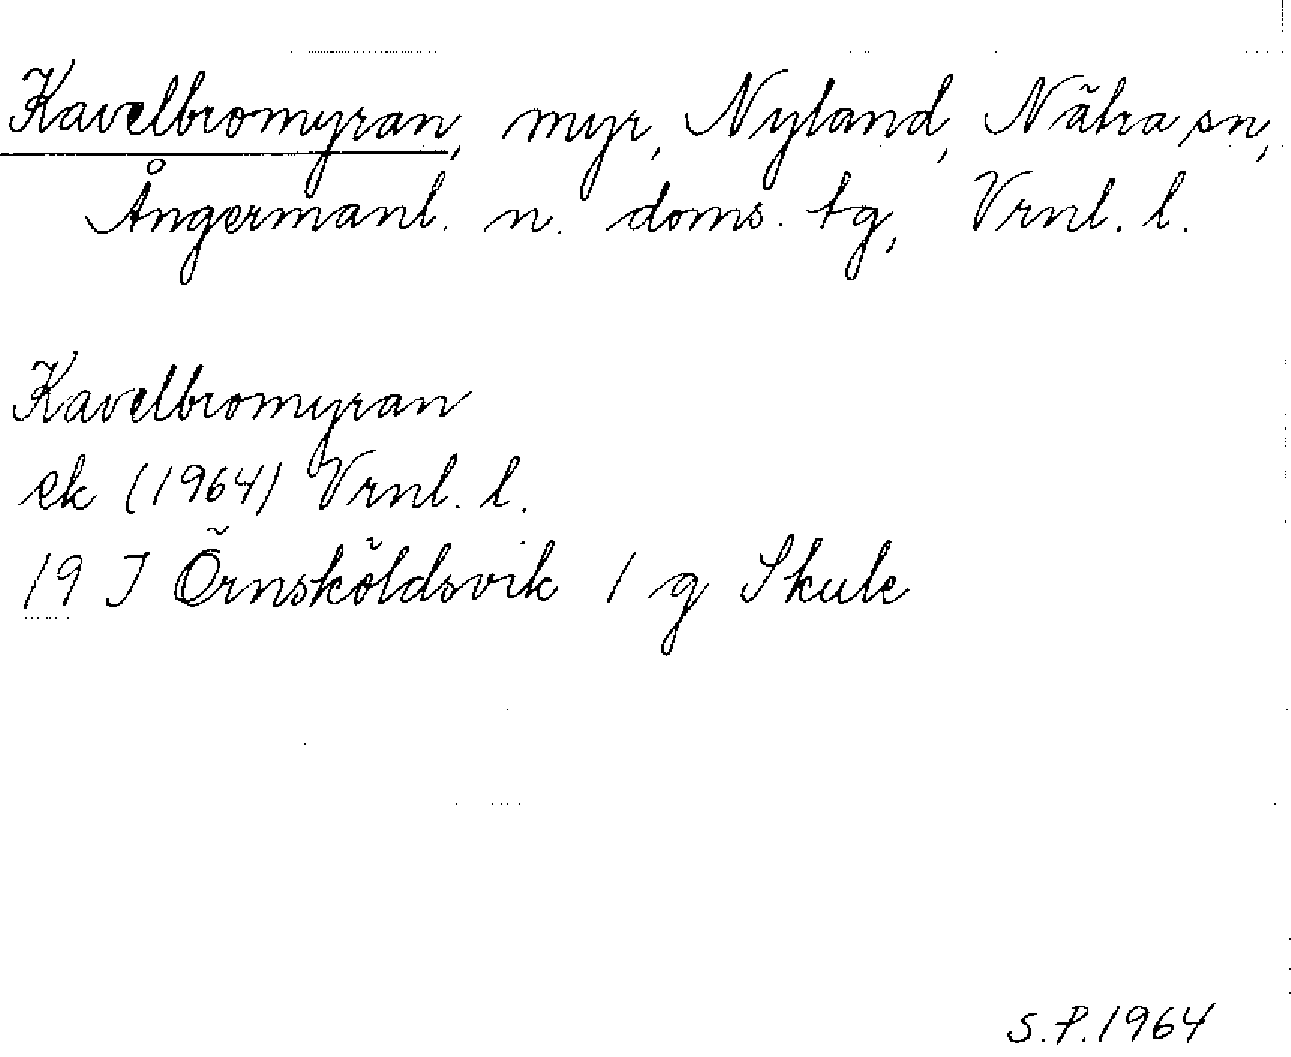 Kavelbromyran, myr, Nyland, Nätra sn,
Ångermanl. n. doms. tg, Vrnl. l.
Kavelbromyran
ek (1964) Vrnl. l.
19 I Örnsköldsvik 1 g Skule
S.P. 1964